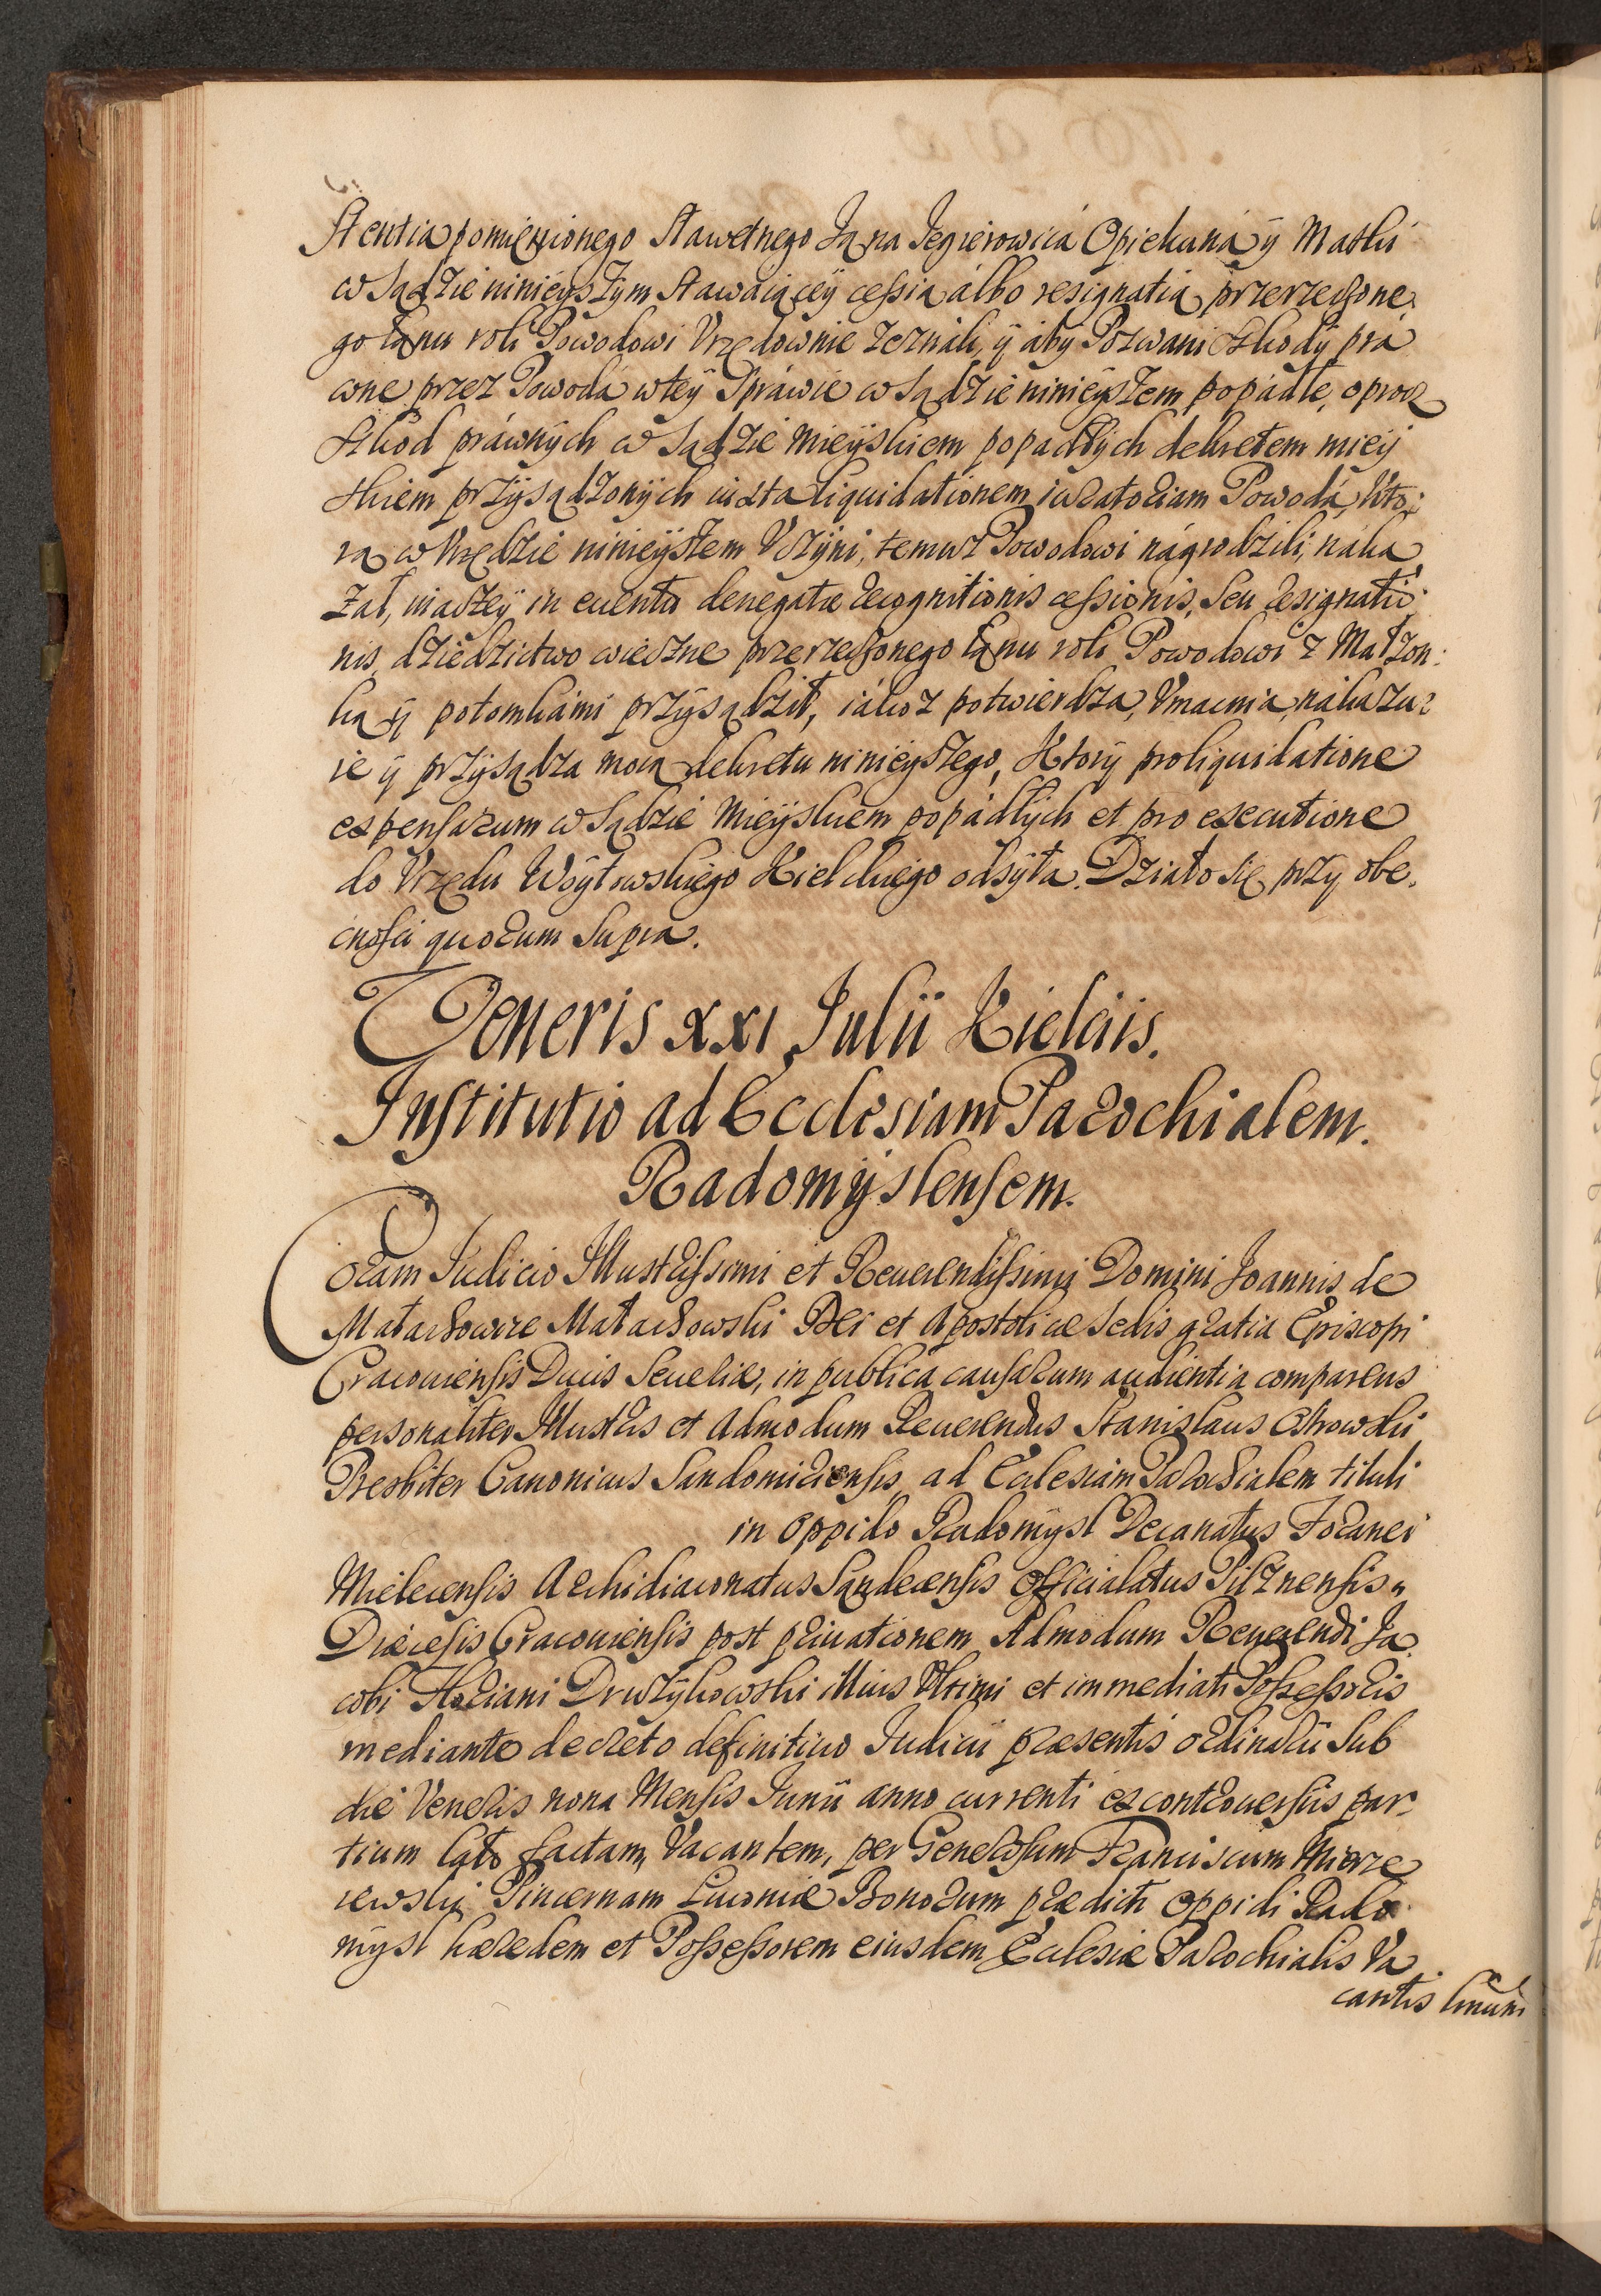 stentią pomięnionego sławetnego Jąna Jegierowicá Opiekuná ÿ Matki
w Sądzie ninieÿszÿm stawáiąceÿ cessią álbo resignatią przerzeczone
go łąnu roli Powodowi Vrzędownie zeználi, ÿ ábÿ Pozwani szkodÿ prá
wne przez Powodá w teÿ Spráwie w Sądzie ninieÿszem popádłe, oprocz
szkod práwnÿch w Sądzie mieÿskiem popadłÿch dekretem mieÿ
skiem przÿsądzonÿch iuxta liquidationem iuratoriam Powodá, kto:
rą w Vrzędzie ninieÿszem Vczÿni, temuz Powodowi nágrodzili, náka
zał, inaczeÿ in euentu denegatæ recognitionis cessionis, seu resignatio
nis, dziedzictwo wieczne przerzeczonego łąnu roli Powodowi z Małzon:
ką ÿ potomkámi przÿsądził, iákoz potwierdza, Vmacnia, nákazu
ie ÿ przÿsądza mocą dekretu ninieÿszego, Ktorÿ pro liquidatione
expensarum w Sądzie mieÿskiem popádłÿch et pro executione
do Vrzędu Woÿtowskiego Kieleckiego odsÿła. Działo się przÿ obe.
cnosci quorum supra.
Veneris XXI Julii Kielciis.
Institutio ad Ecclesiam Parochialem.
Radomÿslensem.
Coram Iudicio Illustrissimi et Reuerendissimi Domini Joannis de
Małachowice Małachowski Dei et Apostolicæ Sedis gratia Episcopi
Cracouiensis Ducis Seueriæ, in publica causarum audientia comparens
personaliter Illustris et Admodum Reuerendus Stanislaus Ostrowski
Presbiter Canonicus Sandomiriensis, ad Ecclesiam Parochialem tituli
in Oppido Radomÿsl Decanatus Foranei
Mielecensis Archidiaconatus Sandecensis Officialatus Pilznensis
Diæcesis Cracouiensis post priuationem Admodum Reuerendi Ja
cobi Floriani Druzÿkowski illius Vltimi et immediati Possessoris
mediante decreto definitiuo Iudicii præsentis ordinarii sub
die Veneris nona Mensis Iunii anno currenti ex controuersiis par
tium lato factam, Vacantem, per Generosum Franciscum Mierze
iewski Pincernam Liuoniæ Bonorum prædicti Oppidi Rado
mÿsl hæredem et Possessorem eiusdem Ecclesiæ Parochialis Va
cantis